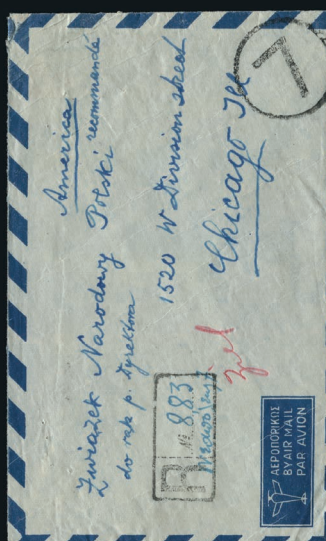 America
Związek Narodowy Polski recommandé
do rąk p. Dyrektora
1520 W Division street
Chicago Ill
R № 883
ΑΕΡΟΠΟΡΙΚΩΣ
BY AIR MAIL
PAR AVION